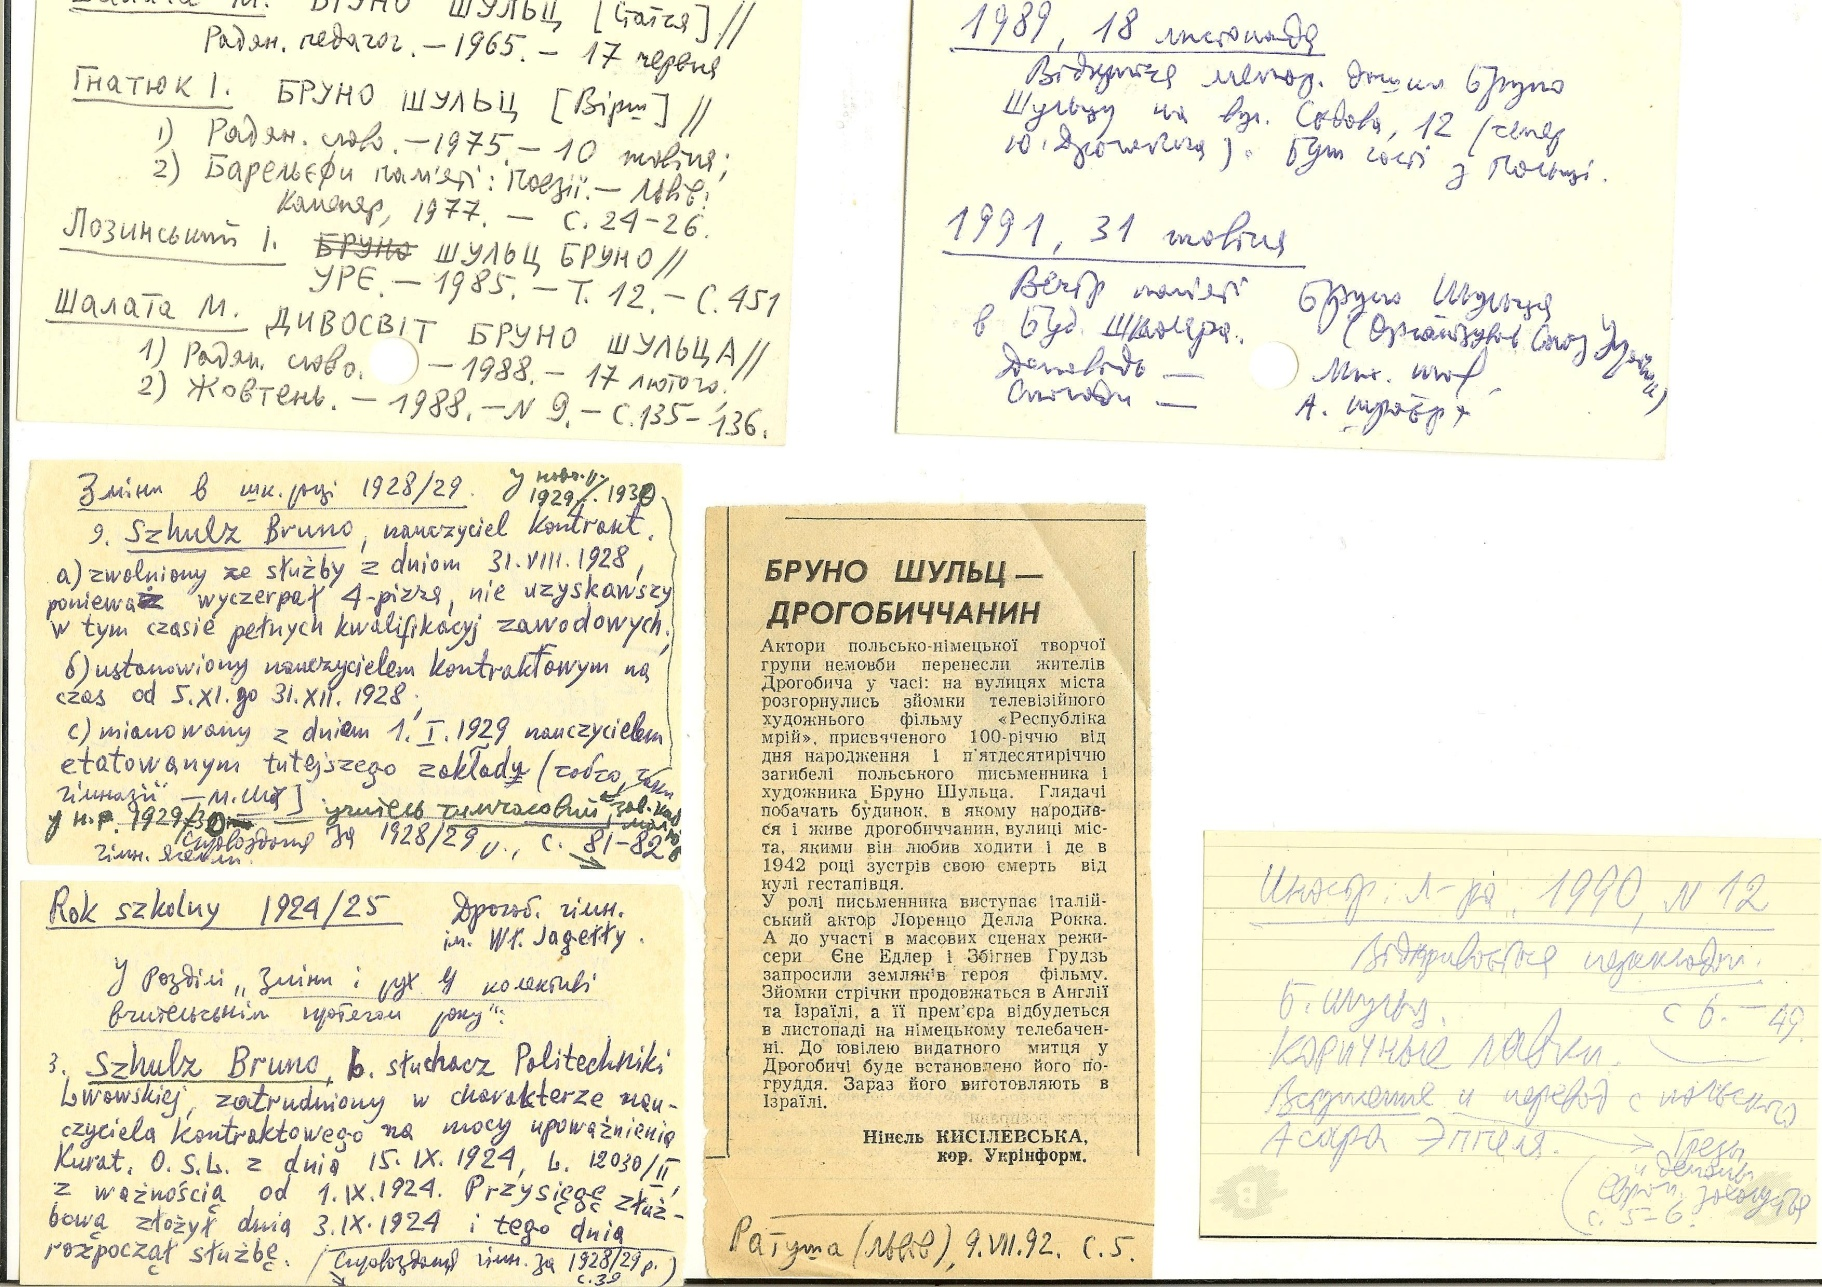 Шалата М. БРУНО ШУЛЬЦ [Стаття] //
Радян. педагог. — 1965. — 17 червня
Гнатюк І. БРУНО ШУЛЬЦ [Вірш] //
1) Радян. слово. — 1975. — 10 жовтня;
2) Барельєфи пам'яті: Поезії. — Львів:
Каменяр, 1977. — С. 24-26.
Лозинський І. БРУНО ШУЛЬЦ БРУНО //
УРЕ. — 1985. — Т. 12. — С. 451
Шалата М. ДИВОСВІТ БРУНО ШУЛЬЦА //
1) Радян. слово. — 1988. — 17 лютого;
2) Жовтень. — 1988. — N 9. — С. 135-136.
1989, 18 листопада
Відкриття мемор. дошки Бруно
Шульцу на вул. Садова, 12 (тепер
Ю. Дрогобича). Були гості з Польщі.
1991, 31 жовтня
Вечір пам'яті Бруно Шульца
в Буд. Школяра. (Організував Союз Українок)
Доповідь — Мих. Шал.
Спогади —
Зміни в шк. році 1928/29. У
1929/1930
9. Szhulz Bruno, nauczyciel kontrakt.
a) zwolniony ze służby z dniom 31.VIII.1928,
ponieważ wyczerpał 4-, nie uzyskawszy
w tym czasie pełnych kwalifikacyj zawodowych,
б) ustanowiony nauczycielem kontraktowym na
czas od 5.XI. go 31.XII. 1928;
c) mianowany z dniem 1.I.1929 nauczycielem
etatowanym tutejszego zakłady (тобто,
гімназії" — М. Ш.]
у н.р. 1929/30 — учитель тимчасовий,
за 1928/29 р., с. 81-82
гімн.
Rok szkolny 1924/25 Дрогоб. гімн.
ім. Wł. Jagełły.
У розділі „Зміни і рух у колективі
вчительськім протягом року":
3. Szhulz Bruno, b. słuchacz Politechniki
Lwowskiej, zatrudniony w charakterze nau-
czyciela kontraktowego na mocy upoważnienia
Kurat. O.S.L. z dnia 15.IX.1924, L. 12030/II,
z ważnością od 1.IX.1924. Przysięgę służ-
bową złożył dnia 3.IX.1924 i tego dnia
rozpoczął służbę. (Справоздання гімн. за 1928/29 р.)
с. 39
БРУНО ШУЛЬЦ —
ДРОГОБИЧЧАНИН
Актори польсько-німецької творчої
групи немовби перенесли жителів
Дрогобича у часі: на вулицях міста
розгорнулись зйомки телевізійного
художнього фільму «Республіка
мрій», присвяченого 100-річчю від
дня народження і п'ятдесятиріччю
загибелі польського письменника і
художника Бруно Шульца. Глядачі
побачать будинок, в якому народив-
ся і живе дрогобиччанин, вулиці міс-
та, якими він любив ходити і де в
1942 році зустрів свою смерть від
кулі гестапівця.
У ролі письменника виступає італій-
ський актор Лоренцо Делла Рокка.
А до участі в масових сценах режи-
сери Єне Едлер і Збігнев Грудзь
запросили земляків героя фільму.
Зйомки стрічки продовжаться в Англії
та Ізраїлі, а її прем'єра відбудеться
в листопаді на німецькому телебачен-
ні. До ювілею видатного митця у
Дрогобичі буде встановлено його по-
груддя. Зараз його виготовляють в
Ізраїлі.
Нінель КИСІЛЕВСЬКА,
кор. Укрінформ.
Ратуша (Львів), 9.VII.92. С. 5.
Иностр. л-ра, 1990, N 12
Відкривається перекладом.
Б. Шульц. с 6. — 49.
Коричные лавки.
Вступление и перевод с польского
Асара Эппеля. → Грезы
и
с. 5-6.